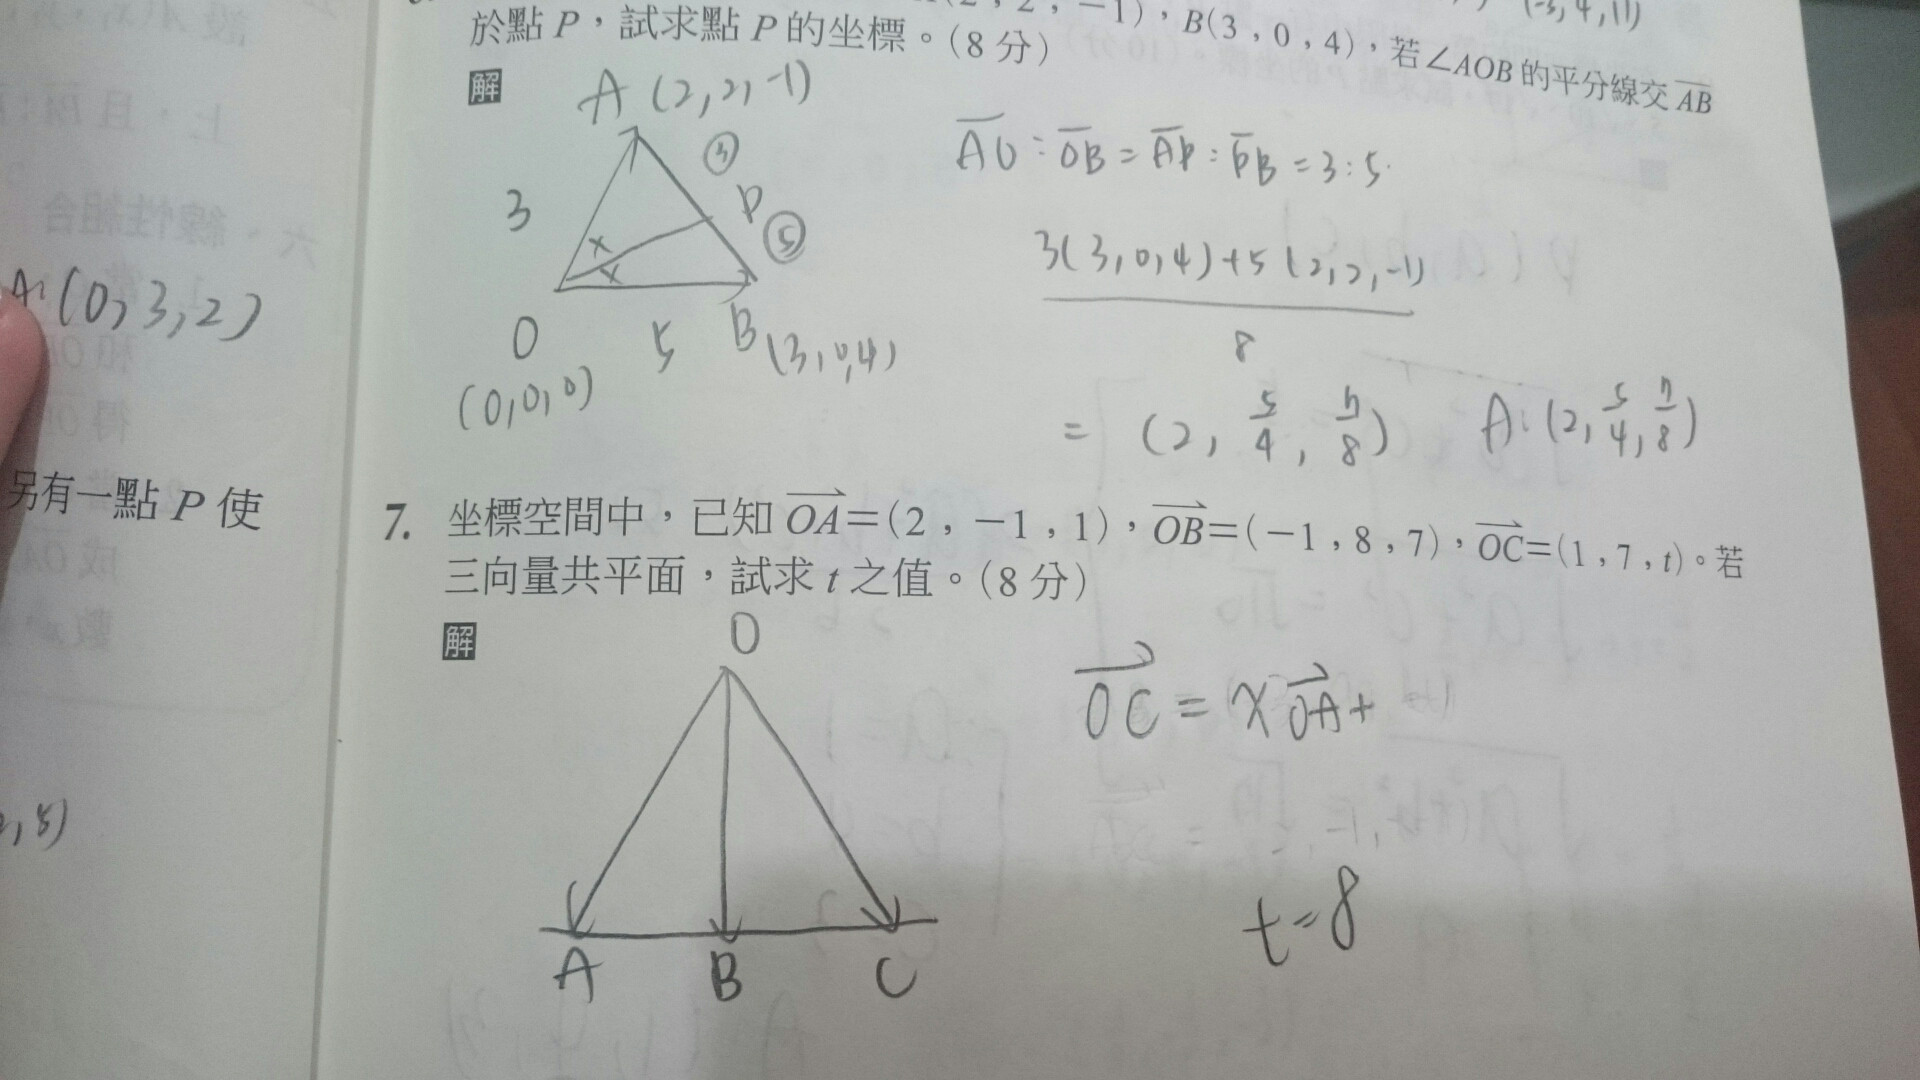 , -1), B(3, 0, 4), 若∠AOB 的平分線交 AB
於點 P, 試求點 P 的坐標。(8 分)
(-3, 4, 11)
解
A (2, 2, -1)
3
③
P
⑤
x
x
O
(0, 0, 0)
5
B (3, 0, 4)
AO : OB = AP : PB = 3 : 5
3(3, 0, 4) + 5(2, 2, -1)
8
= (2, 5/4, 7/8) A: (2, 5/4, 7/8)
A: (0, 3, 2)
另有一點 P 使
, 5)
7. 坐標空間中,已知 OA=(2, -1, 1), OB=(-1, 8, 7), OC=(1, 7, t)。若
三向量共平面,試求 t 之值。(8 分)
解
O
A B C
OC = xOA +
t = 8